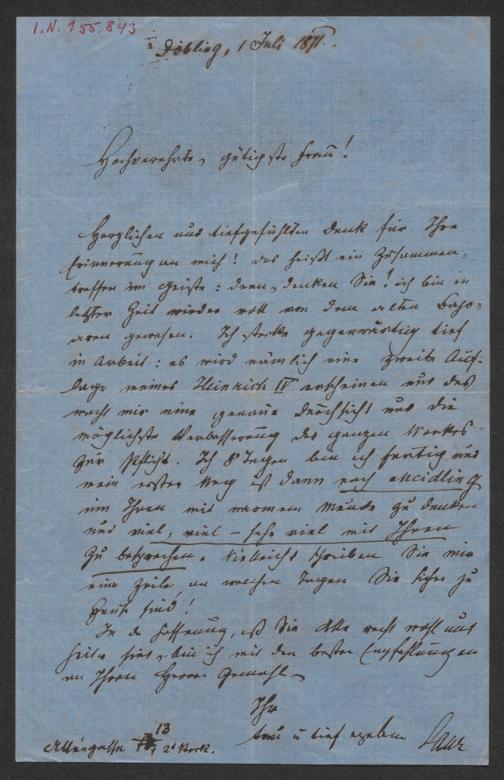 I.N. 155.843
Döbling, 1 Juli 1871.
Hochverehrte, gütigste Frau!
Herzlichen und tiefgefühlten Dank für Ihre
Erinnerung an mich! das heißt ein Zusammen-
treffen im Geiste: denn, denken Sie! ich bin in
letzter Zeit wieder voll von dem alten
gewesen. Ich stecke gegenwärtig tief
in Arbeit: es wird nämlich eine zweite Auf-
lage meines Heinrich IV erscheinen und das
macht mir eine genaue Durchsicht und die
möglichste Verbesserung des ganzen Werkes
zur Pflicht. In 8 Tagen bin ich fertig und
mein erster Weg ist dann nach Meidling
um Ihnen mit warmem Munde zu danken
und viel, viel – sehr viel mit Ihnen
zu besprechen. Vielleicht schreiben Sie mir
eine Zeile, an welchen Tagen Sie sicher zu
Hause sind!
In der Hoffnung, daß Sie Alle recht wohl und
heiter sind, bin ich mit den besten Empfehlungen
an Ihren Herrn Gemahl
Ihr
treu u tief ergebener Saar
13
2t Stock.